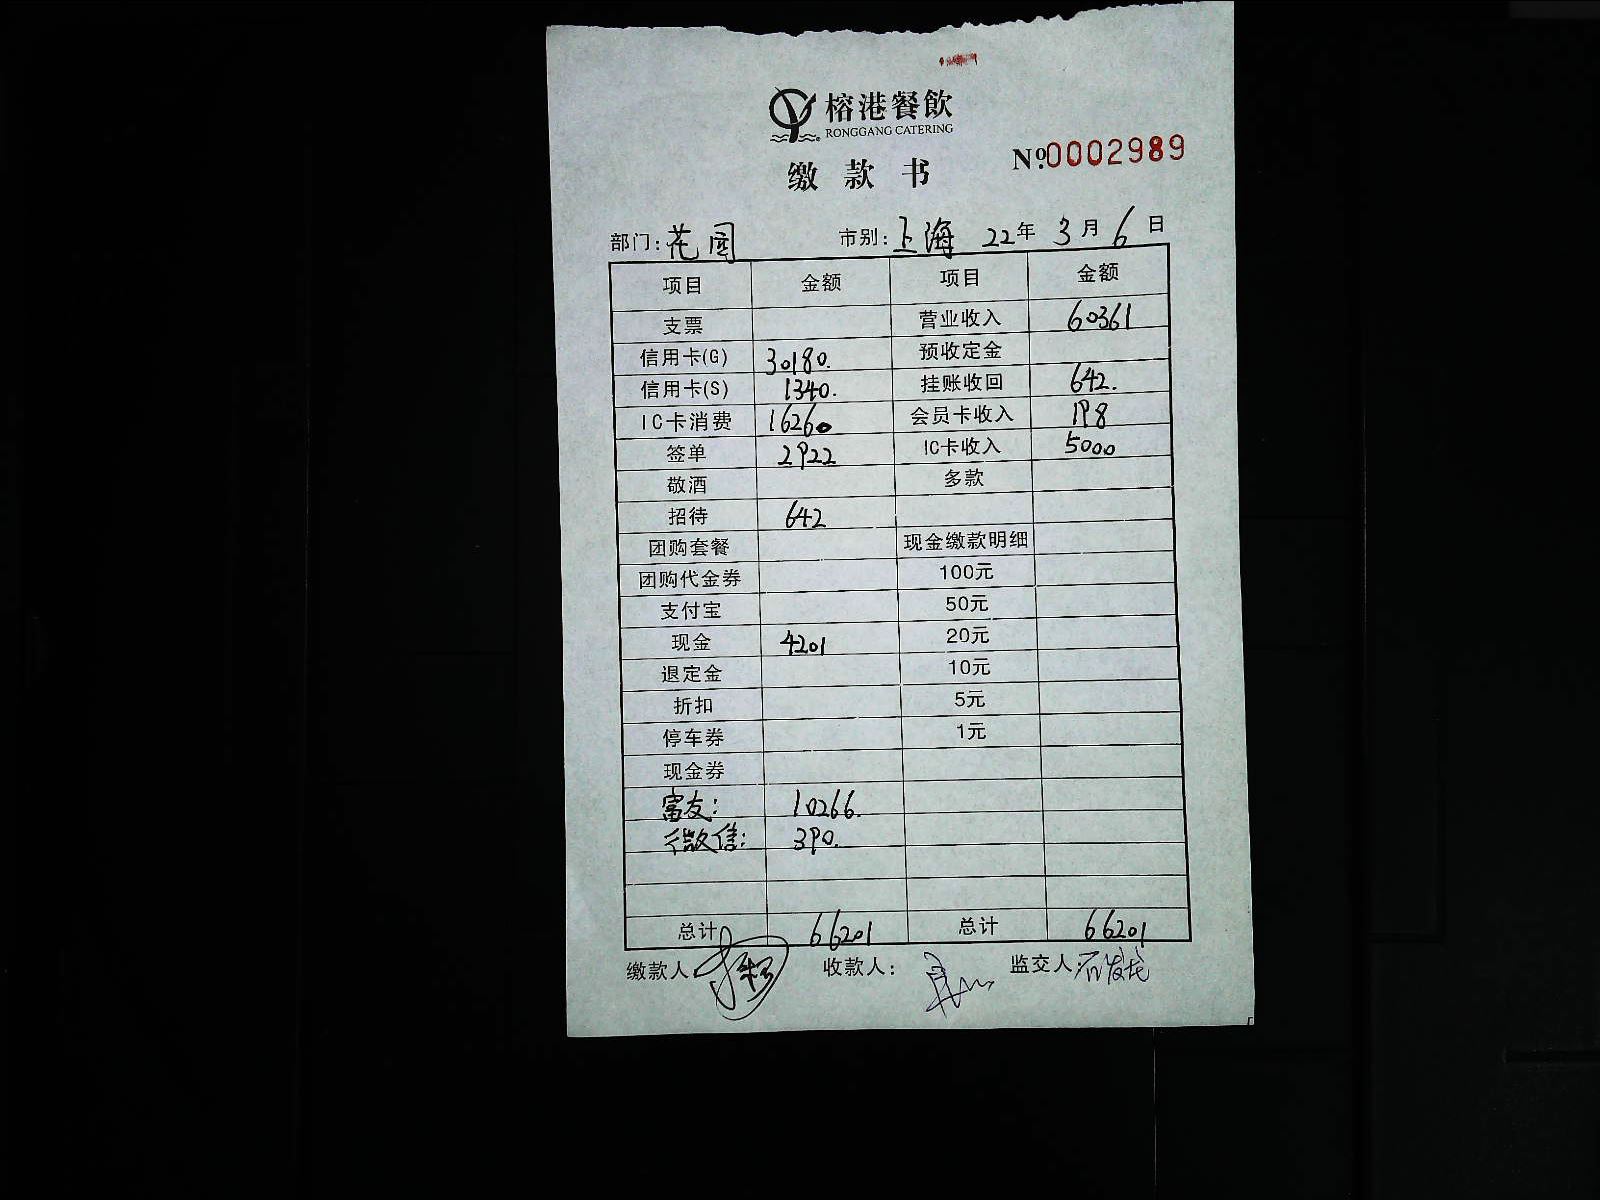 榕港餐飲
RONGGANG CATERING
缴款书
№.0002989
部门:花园 市别:上海 22年 3月 6日
项目 金额 项目 金额
支票 营业收入 60361
信用卡(G) 30180. 预收定金
信用卡(S) 1340. 挂账收回 642.
IC卡消费 16260 会员卡收入 198
签单 2922 IC卡收入 5000
敬酒 多款
招待 642
团购套餐 现金缴款明细
团购代金券 100元
支付宝 50元
现金 4201 20元
退定金 10元
折扣 5元
停车券 1元
现金券
富友: 10266.
微信: 390.
总计 66201 总计 66201
缴款人 收款人: 监交人: